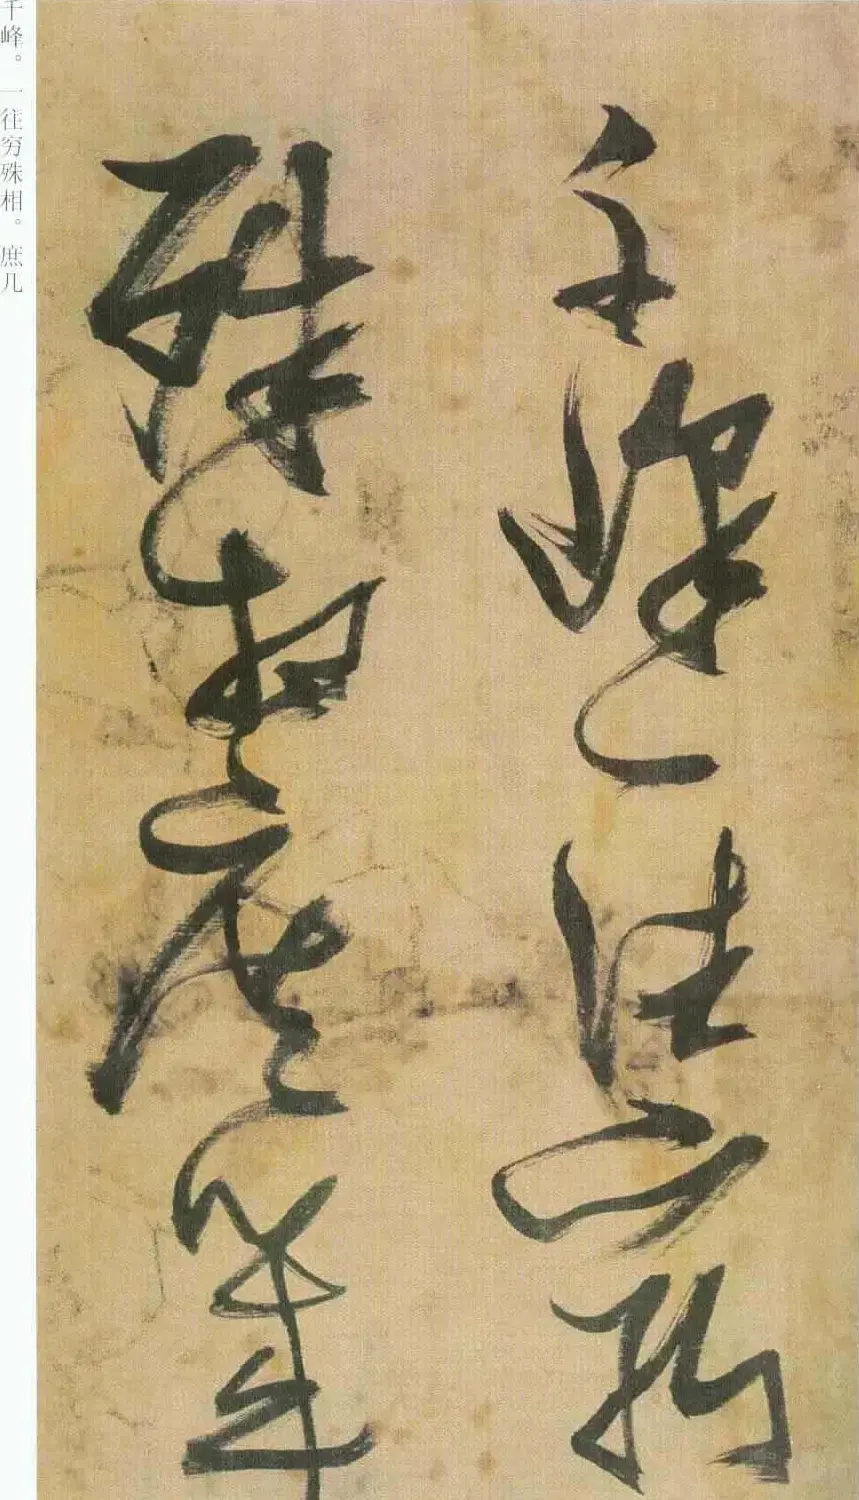 千峰一往窮
殊相庶幾
千峰。一往穷殊相。庶几